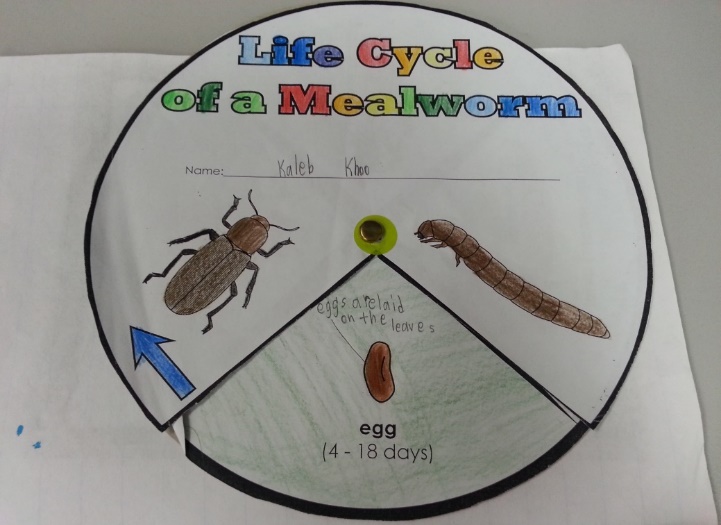 Life Cycle
of a Mealworm
Name: Kaleb Khoo
eggs are laid
on the leaves
egg
(4 - 18 days)